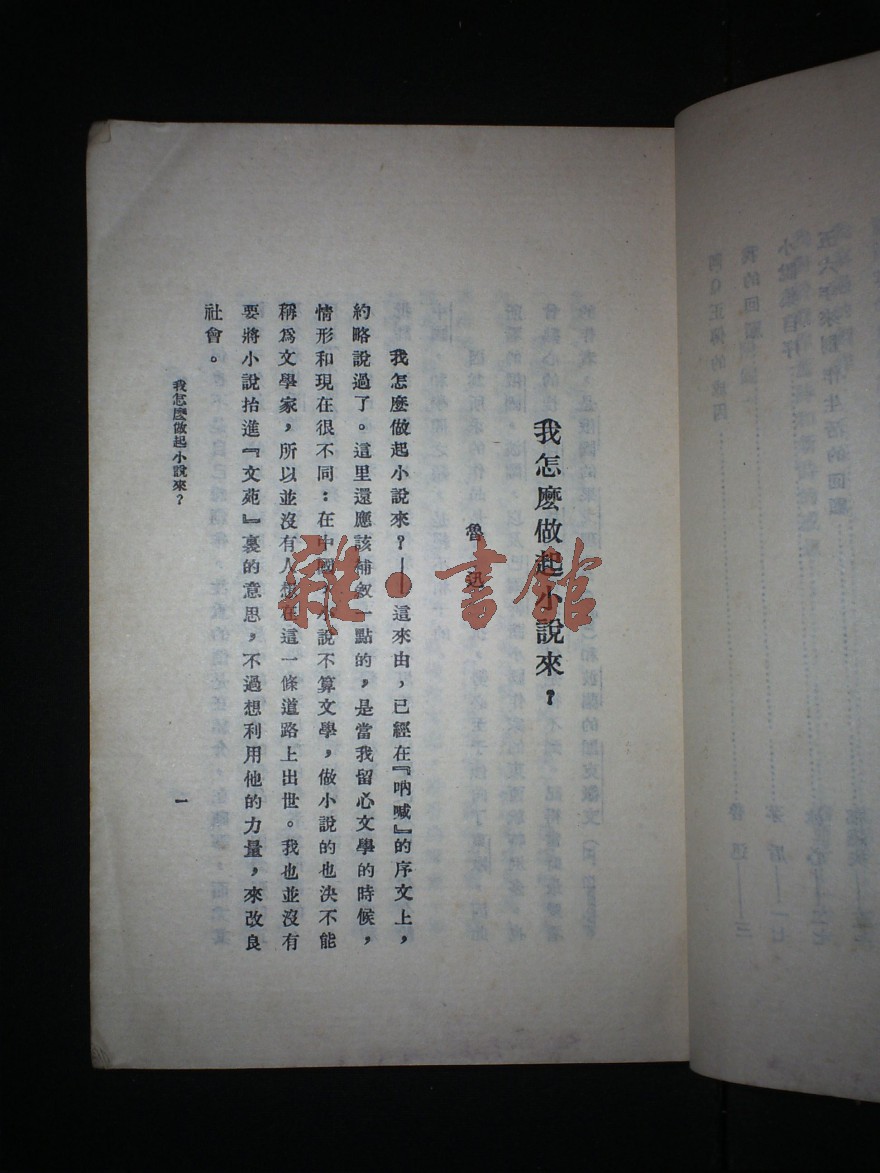 我怎麼做起小說來?
魯迅
我怎麼做起小說來?——這來由,已經在『吶喊』的序文上,
約略說過了。這里還應該補敘一點的,是當我留心文學的時候,
情形和現在很不同:在中國,小說不算文學,做小說的也決不能
稱爲文學家,所以並沒有人想在這一條道路上出世。我也並沒有
要將小說抬進『文苑』裏的意思,不過想利用他的力量,來改良
社會。
我怎麼做起小說來?
一
雜·書館